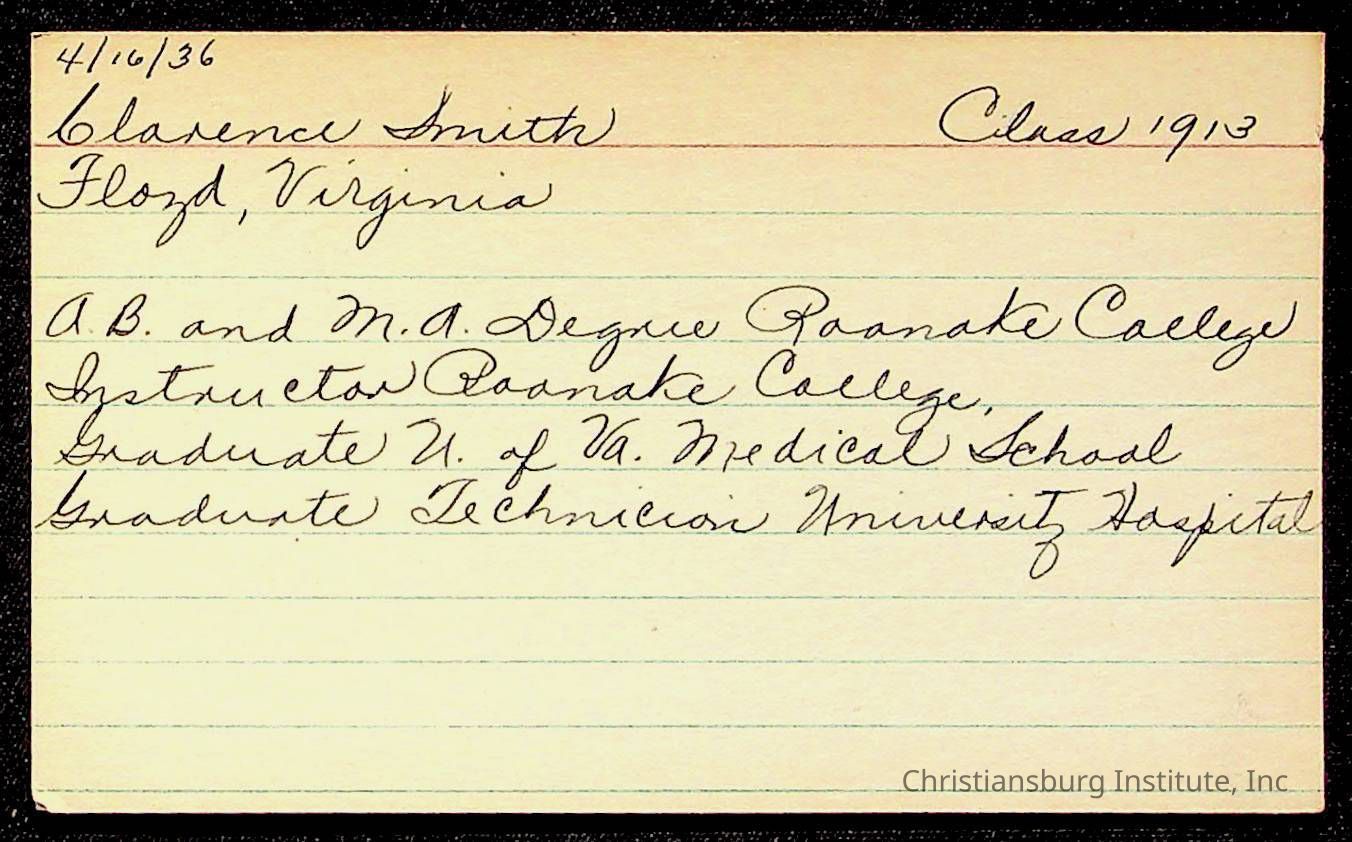 4/16/36
Clarence Smith Class 1913
Floyd, Virginia
A.B. and M.A. Degree Roanoke College
Instructor Roanoke College.
Graduate U. of Va. Medical School
Graduate Technician University Hospital
Christiansburg Institute, Inc